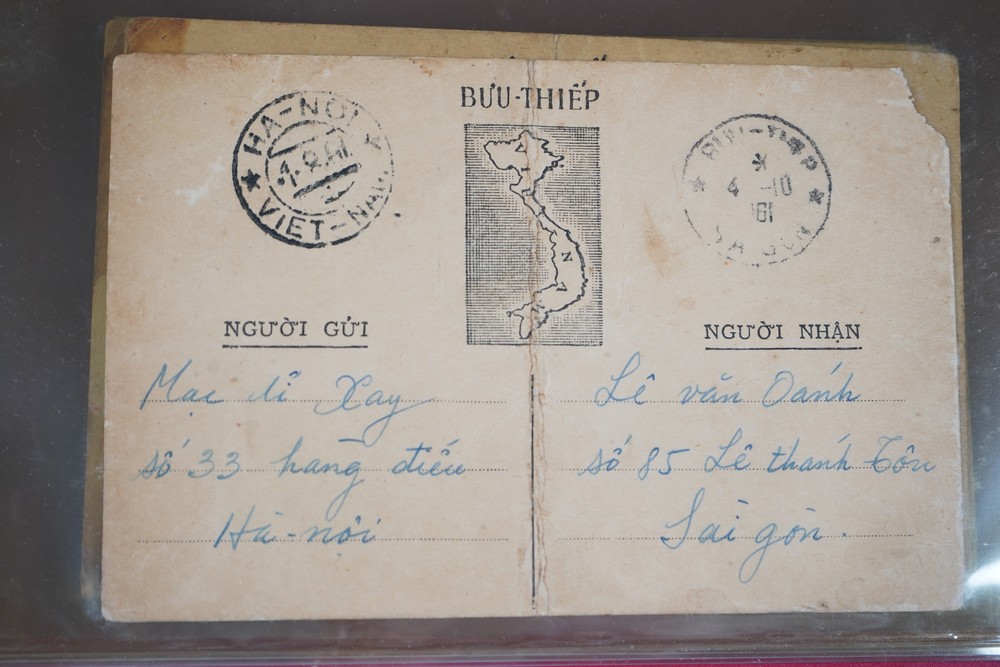 BƯU-THIẾP
★ HA-NOI ★
VIET-NAM
BUU-THIEP
4 -10
61
SAIGON
V I E T
N A
NGƯỜI GỬI
Mạc
Xay
số 33 hàng điếu
Hà-nội
NGƯỜI NHẬN
Lê văn Oanh
số 85 Lê thánh Tôn
Sài gòn.